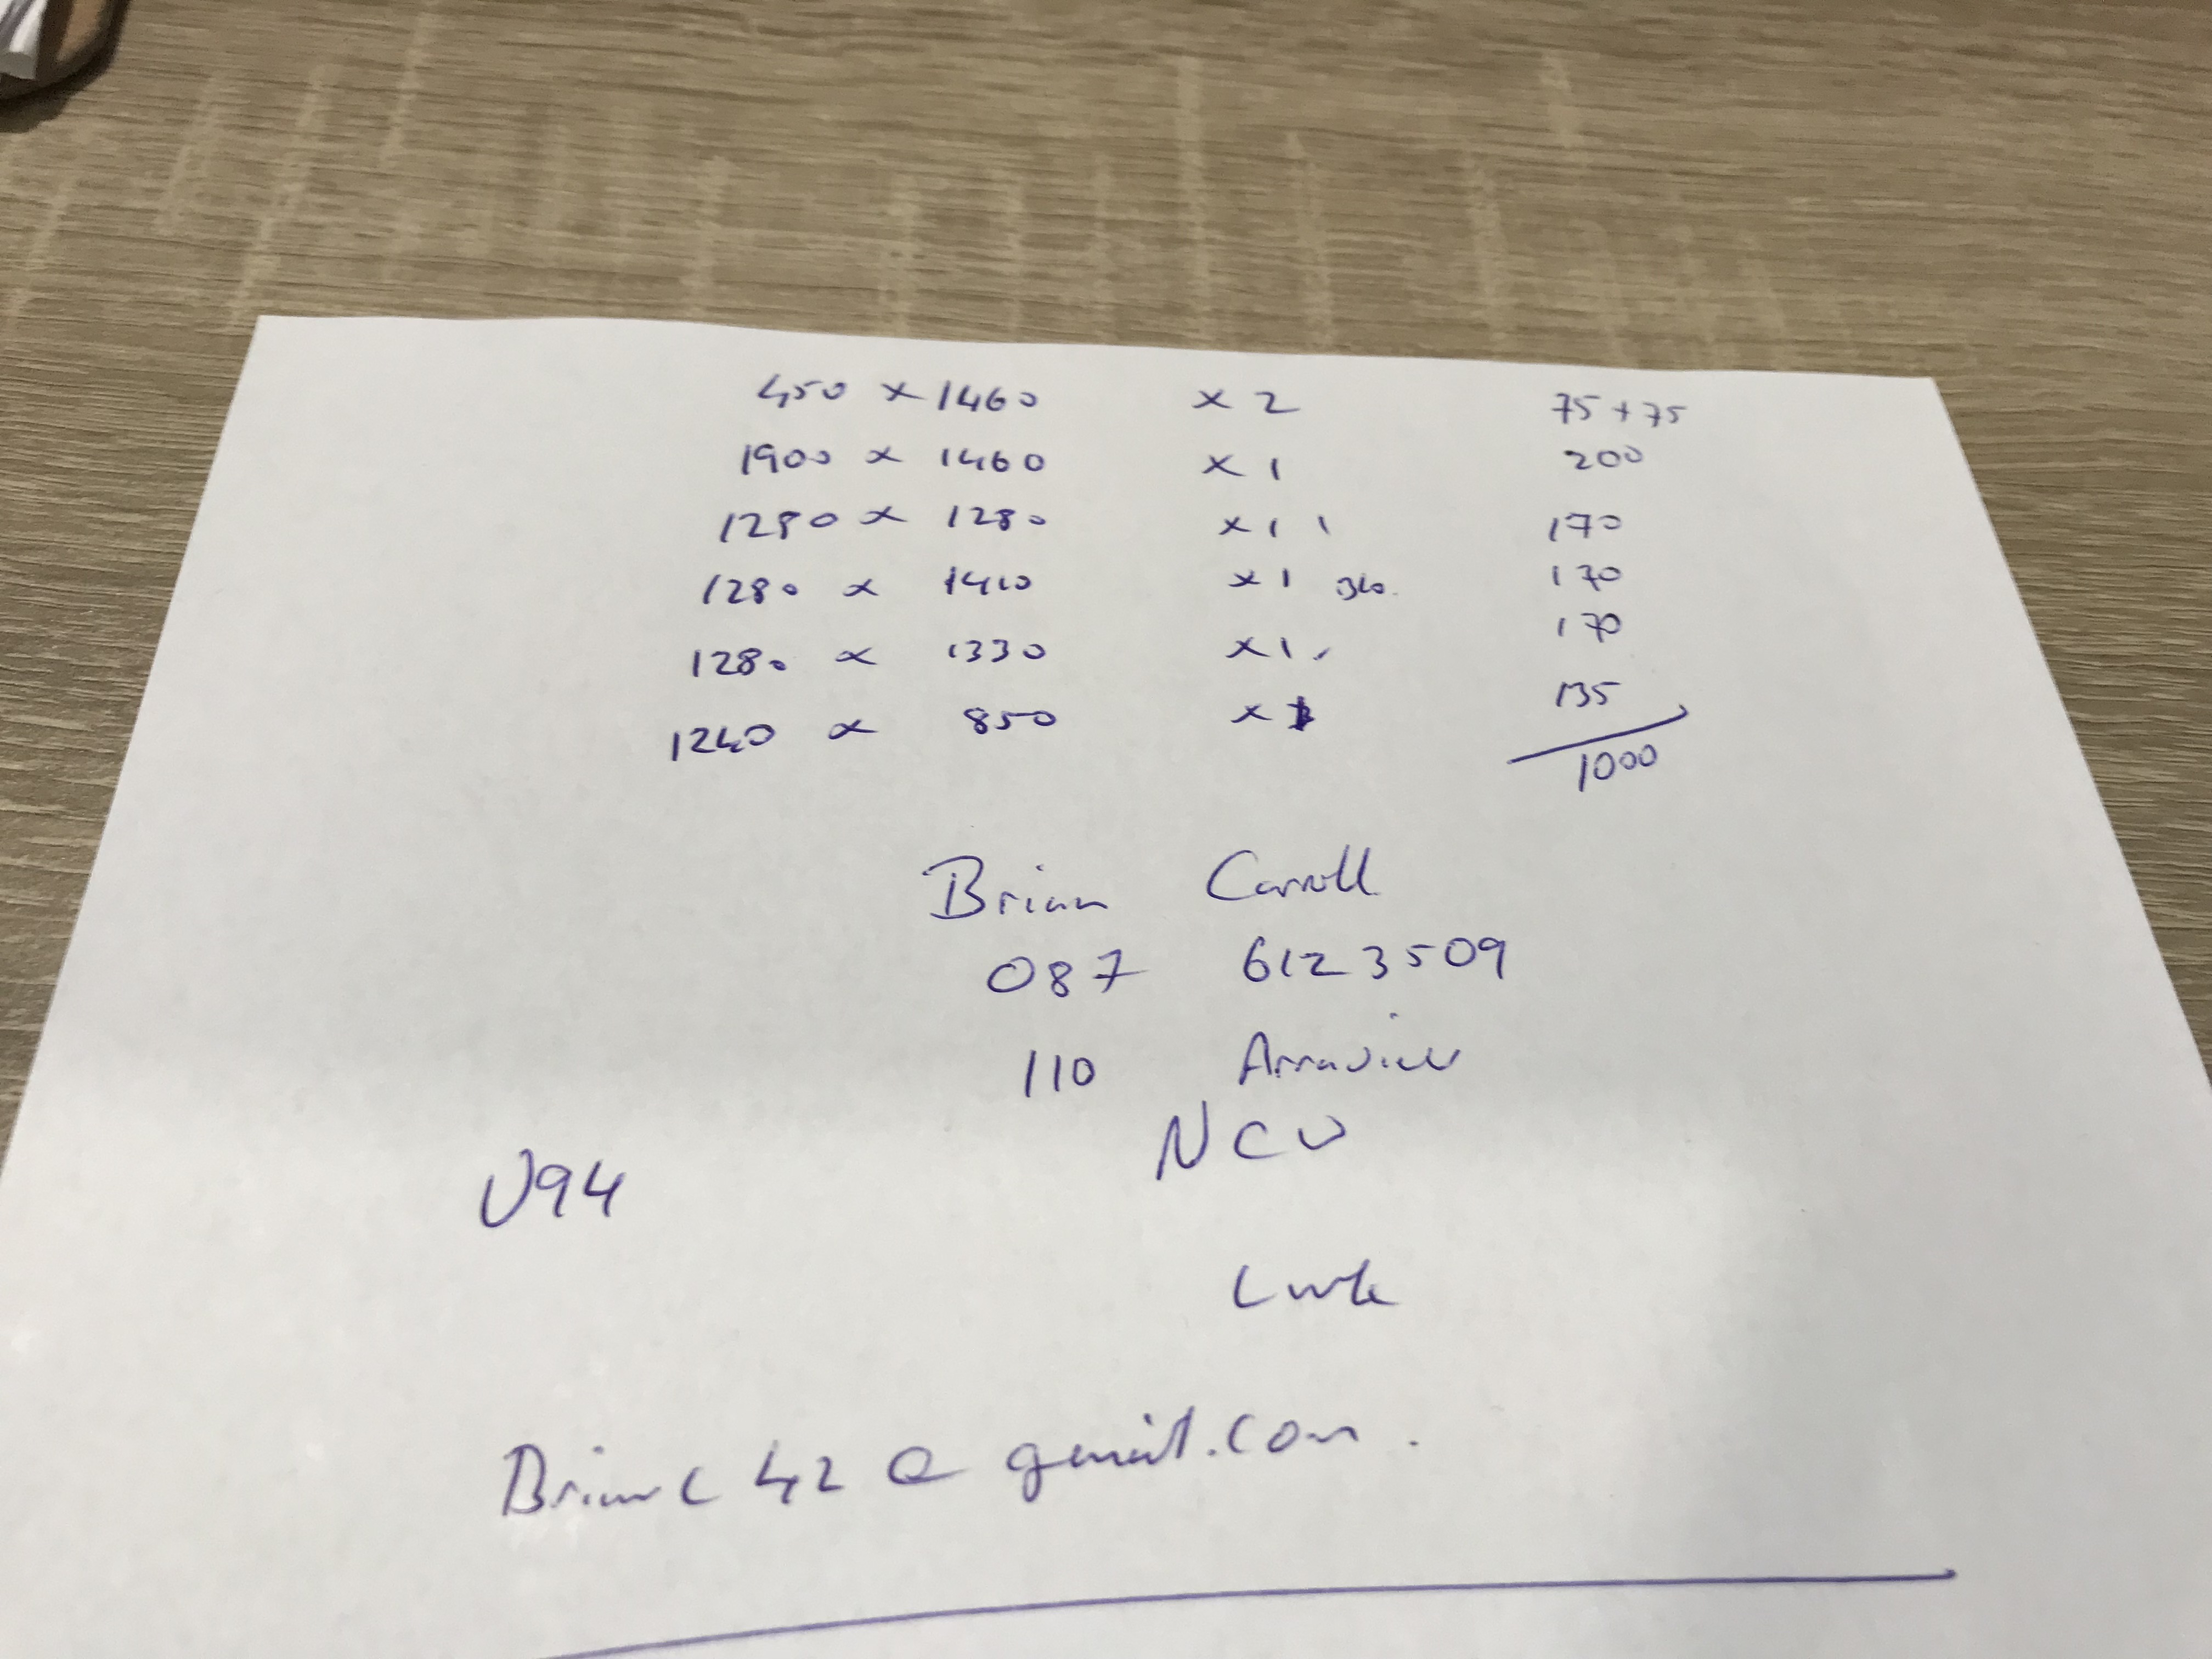 450 x 1460 x 2 75 + 75
1900 x 1460 x 1 200
1280 x 1280 x 1 170
1280 x 1410 x 1 170
1280 x 1330 x 1 170
1240 x 850 x 135
1000
Brian Carroll
087 6123509
110
NCW
V94
Brianc42@gmail.com.